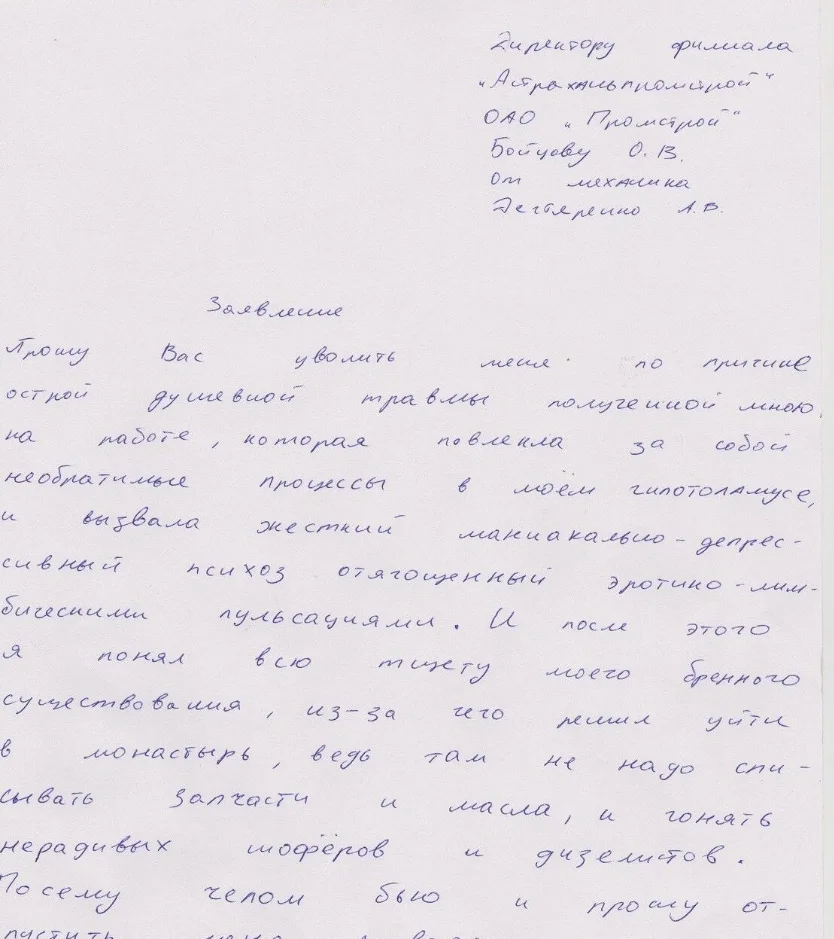 Директору филиала
„Астраханьпромстрой"
ОАО „Промстрой"
Бойцову О.В.
От механика
Дегтяренко А.В.
Заявление
Прошу Вас уволить меня по причине
острой душевной травмы полученной мною
на работе, которая повлекла за собой
необратимые процессы в моём гипотоламусе,
и вызвала жесткий маниакально-депрес-
сивный психоз отягощенный эротико-лим-
бическими пульсациями. И после этого
я понял всю тщету моего бренного
существования, из-за чего решил уйти
в монастырь, ведь там не надо спи-
сывать запчасти и масла, и гонять
нерадивых шофёров и дизелистов.
Посему челом бью и прошу от-
пустить меня